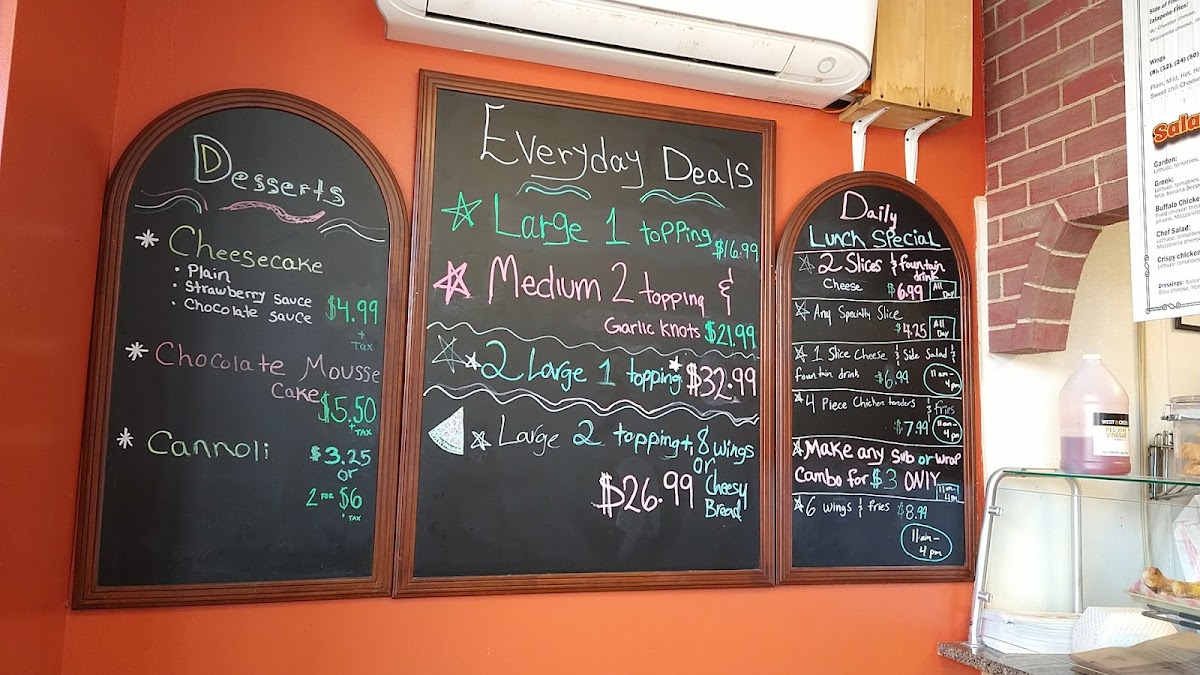 Desserts
Cheesecake
• Plain
• Strawberry sauce
• Chocolate sauce
$4.99
+
TAX
Chocolate Mousse
Cake
$5.50
+
TAX
Cannoli
$3.25
or
2 FOR $6
+ TAX
Everyday Deals
Large 1 topping
$16.99
Medium 2 topping &
Garlic knots $21.99
2 Large 1 topping $32.99
Large 2 topping +, 8 wings
or
$26.99 Cheesy
Bread
Daily
Lunch Special
2 Slices & fountain
drink
Cheese $6.99 All
Day
Any Specialty Slice
$4.25 All
Day
1 Slice Cheese & Side Salad &
fountain drink $6.99 11am -
4pm
4 Piece Chicken tenders & fries
$7.99 11am -
4pm
Make any Sub or Wrap
Combo for $3 ONLY
11am -
4pm
6 wings & fries $8.99
11am -
4pm
Jalapeño Fries:
W/ Cheddar cheese,
Mozzarella cheese,
Wings
(6), (12), (24) (50)
Plain, Mild, Hot,
Sweet chili
Sala
Garden:
Lettuce, tomatoes,
Greek:
Buffalo Chicken
Chef Salad:
Crispy chicken
Dressings:
WEST CREEK
RED WINE
VINEGAR